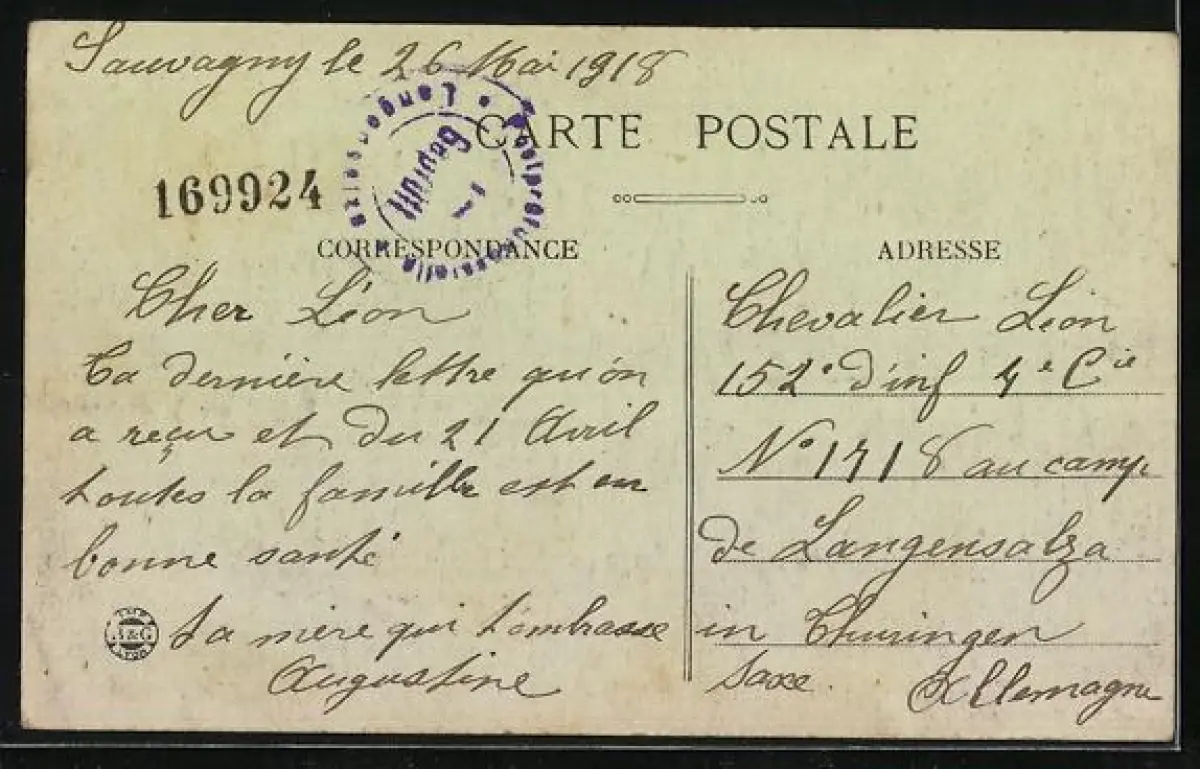 Sauvagny le 26 Mai 1918
CARTE POSTALE
169924
Langensalza
Geprüft
CORRESPONDANCE
ADRESSE
Cher Léon
Ta dernière lettre qu'on
a reçu et du 21 Avril
toutes la famille est en
bonne santé
Ta mère qui t'ombrasse
Augustine
Chevalier Léon
152e d'inf 4e Cie
No 1718 au camp
de Langensalza
in Thuringen
Saxe. Allemagne